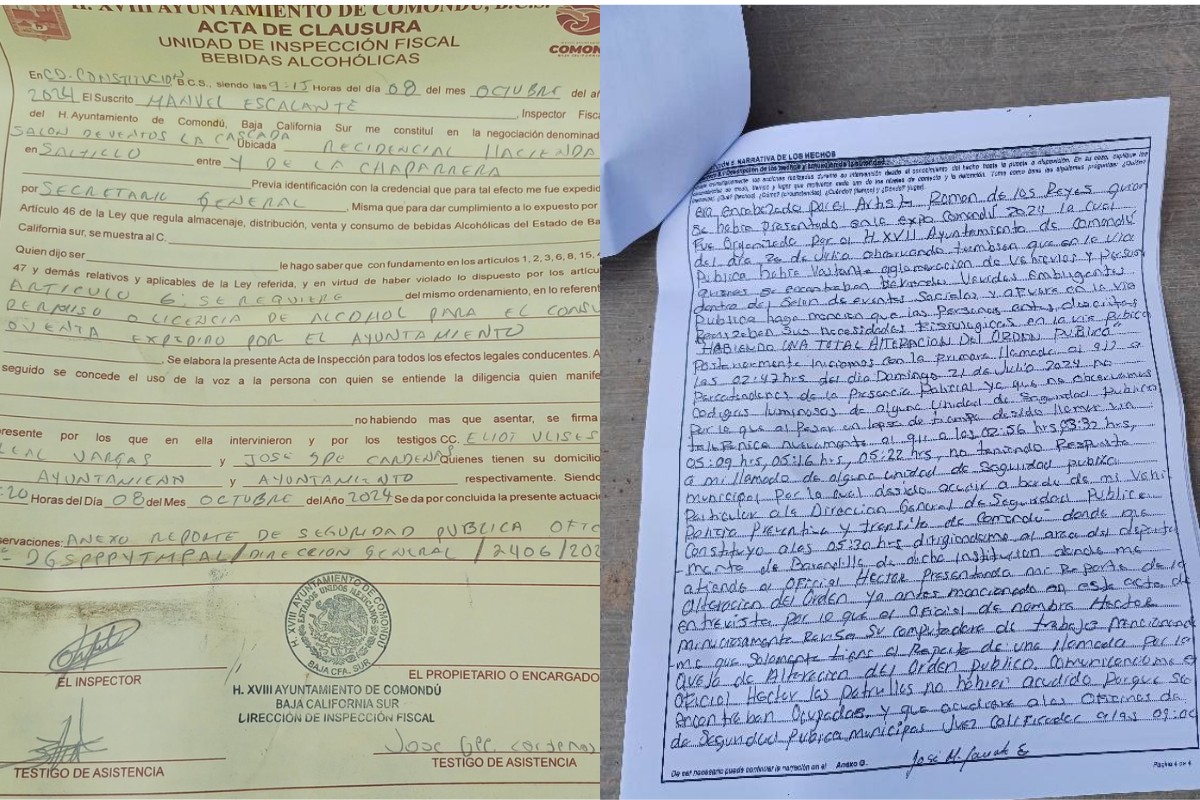 H. XVIII AYUNTAMIENTO DE COMONDÚ, B.C.S.
ACTA DE CLAUSURA
UNIDAD DE INSPECCIÓN FISCAL
BEBIDAS ALCOHÓLICAS
COMONDÚ
En CD. CONSTITUCION B.C.S., siendo las 9:15 Horas del día 08 del mes OCTUBRE del añ
2024 El Suscrito MANUEL ESCALANTE , Inspector Fisca
del H. Ayuntamiento de Comondú, Baja California Sur me constituí en la negociación denominad
SALON DE VENTOS LA CASCADA Ubicada RECIDENCIAL HACIENDA
en SALTILLO entre Y DE LA CHAPARRERA
Previa identificación con la credencial que para tal efecto me fue expedid
por SECRETARIO GENERAL , Misma que para dar cumplimiento a lo expuesto por
Artículo 46 de la Ley que regula almacenaje, distribución, venta y consumo de bebidas Alcohólicas del Estado de Ba
California sur, se muestra al C.
Quien dijo ser le hago saber que con fundamento en los artículos 1, 2, 3, 6, 8, 15, 4
47 y demás relativos y aplicables de la Ley referida, y en virtud de haber violado lo dispuesto por los artícul
ARTICULO 6. SE REQUIERE del mismo ordenamiento, en lo referent
PERMISO O LICENCIA DE ALCOHOL PARA EL CONSU
O VENTA EXPEDIRO POR EL AYUNTAMIENTO
, Se elabora la presente Acta de Inspección para todos los efectos legales conducentes. A
seguido se concede el uso de la voz a la persona con quien se entiende la diligencia quien manife
no habiendo mas que asentar, se firma
resente por los que en ella intervinieron y por los testigos CC. ELIOT ULISES
LEAL VARGAS y JOSE GPE CARDENAS Quienes tienen su domicilio
AYUNTAMIENN y AYUNTAMIENTO respectivamente. Siendo
:20 Horas del Día 08 del Mes OCTUBRE del Año 2024 Se da por concluida la presente actuació
servaciones: ANEXO REPORTE DE SEGURIDAD PUBLICA OFIC
DGSPPPYTMPAL/DIRECCION GENERAL/2406/202
H. XVIII AYUNTAMIENTO DE COMONDÚ
ESTADOS UNIDOS MEXICANOS
BAJA CFA. SUR
EL INSPECTOR
EL PROPIETARIO O ENCARGADO
H. XVIII AYUNTAMIENTO DE COMONDÚ
BAJA CALIFORNIA SUR
DIRECCIÓN DE INSPECCIÓN FISCAL
Jose Gpe. Cardenas
TESTIGO DE ASISTENCIA
TESTIGO DE ASISTENCIA
NARRATIVA DE LOS HECHOS
era encabezado por el Artista Roman de los Reyes quien
se habia presentado en la expo Comondú 2024 la cual
fue Organizada por el H. XVII Ayuntamiento de Comondú
del dia 20 de Julio observando tambien que en la via
Publica habia Vastante aglomeracion de Vehiculos y Personas
quienes se encontraban Vevidas Embriagantes
dentro del Salon de eventos Sociales y afuera en la via
Publica hago mencion que las Personas antes descritas
Realizaban sus necesidades Fisiologicas en la via Publica
"HABIENDO UNA TOTAL ALTERACION DEL ORDEN PUBLICO"
Posteriormente iniciamos con la primera llamada al 911 a
las 02:47hrs del dia Domingo 21 de Julio 2024 no
Percatandonos de la Presencia Policial ya que no observamos
Codigos luminosos de alguna Unidad de Seguridad Publica
Por lo que al pasar un lapso de tiempo decido llamar via
telefonica nuevamente al 911 a las 02:56 hrs, 03:32 hrs,
05:09 hrs, 05:16 hrs, 05:22 hrs, no teniendo Respuesta
a mi llamado de alguna unidad de Seguridad publica
municipal Por lo cual desido acudir a bordo de mi Vehi
Particular a la Direccion General de Seguridad Publica
Policia Preventiva y transito de Comondú donde que
Constituyo a las 05:30 hrs dirigiendome al area del departa
mento de Barandilla de dicha Institucion donde me
atiende el Oficial Hector Presentando mi Reporte de la
Alteracion del Orden ya antes mencionado en este acta de
entrevista por lo que el Oficial de nombre Hector
minuciosamente Revisa su computadora de trabajo mencionando
me que Solamente tiene el Reporte de una llamada por la
Queja de Alteracion del Orden publico, Comunicandome el
Oficial Hector las patrullas no habian acudido Porque se
encontraban Ocupadas, y que acudiera a las Oficinas de
de Seguridad Publica municipal Juez Calificador a las 09:00
De ser necesario puede continuar la narración en el Anexo G.